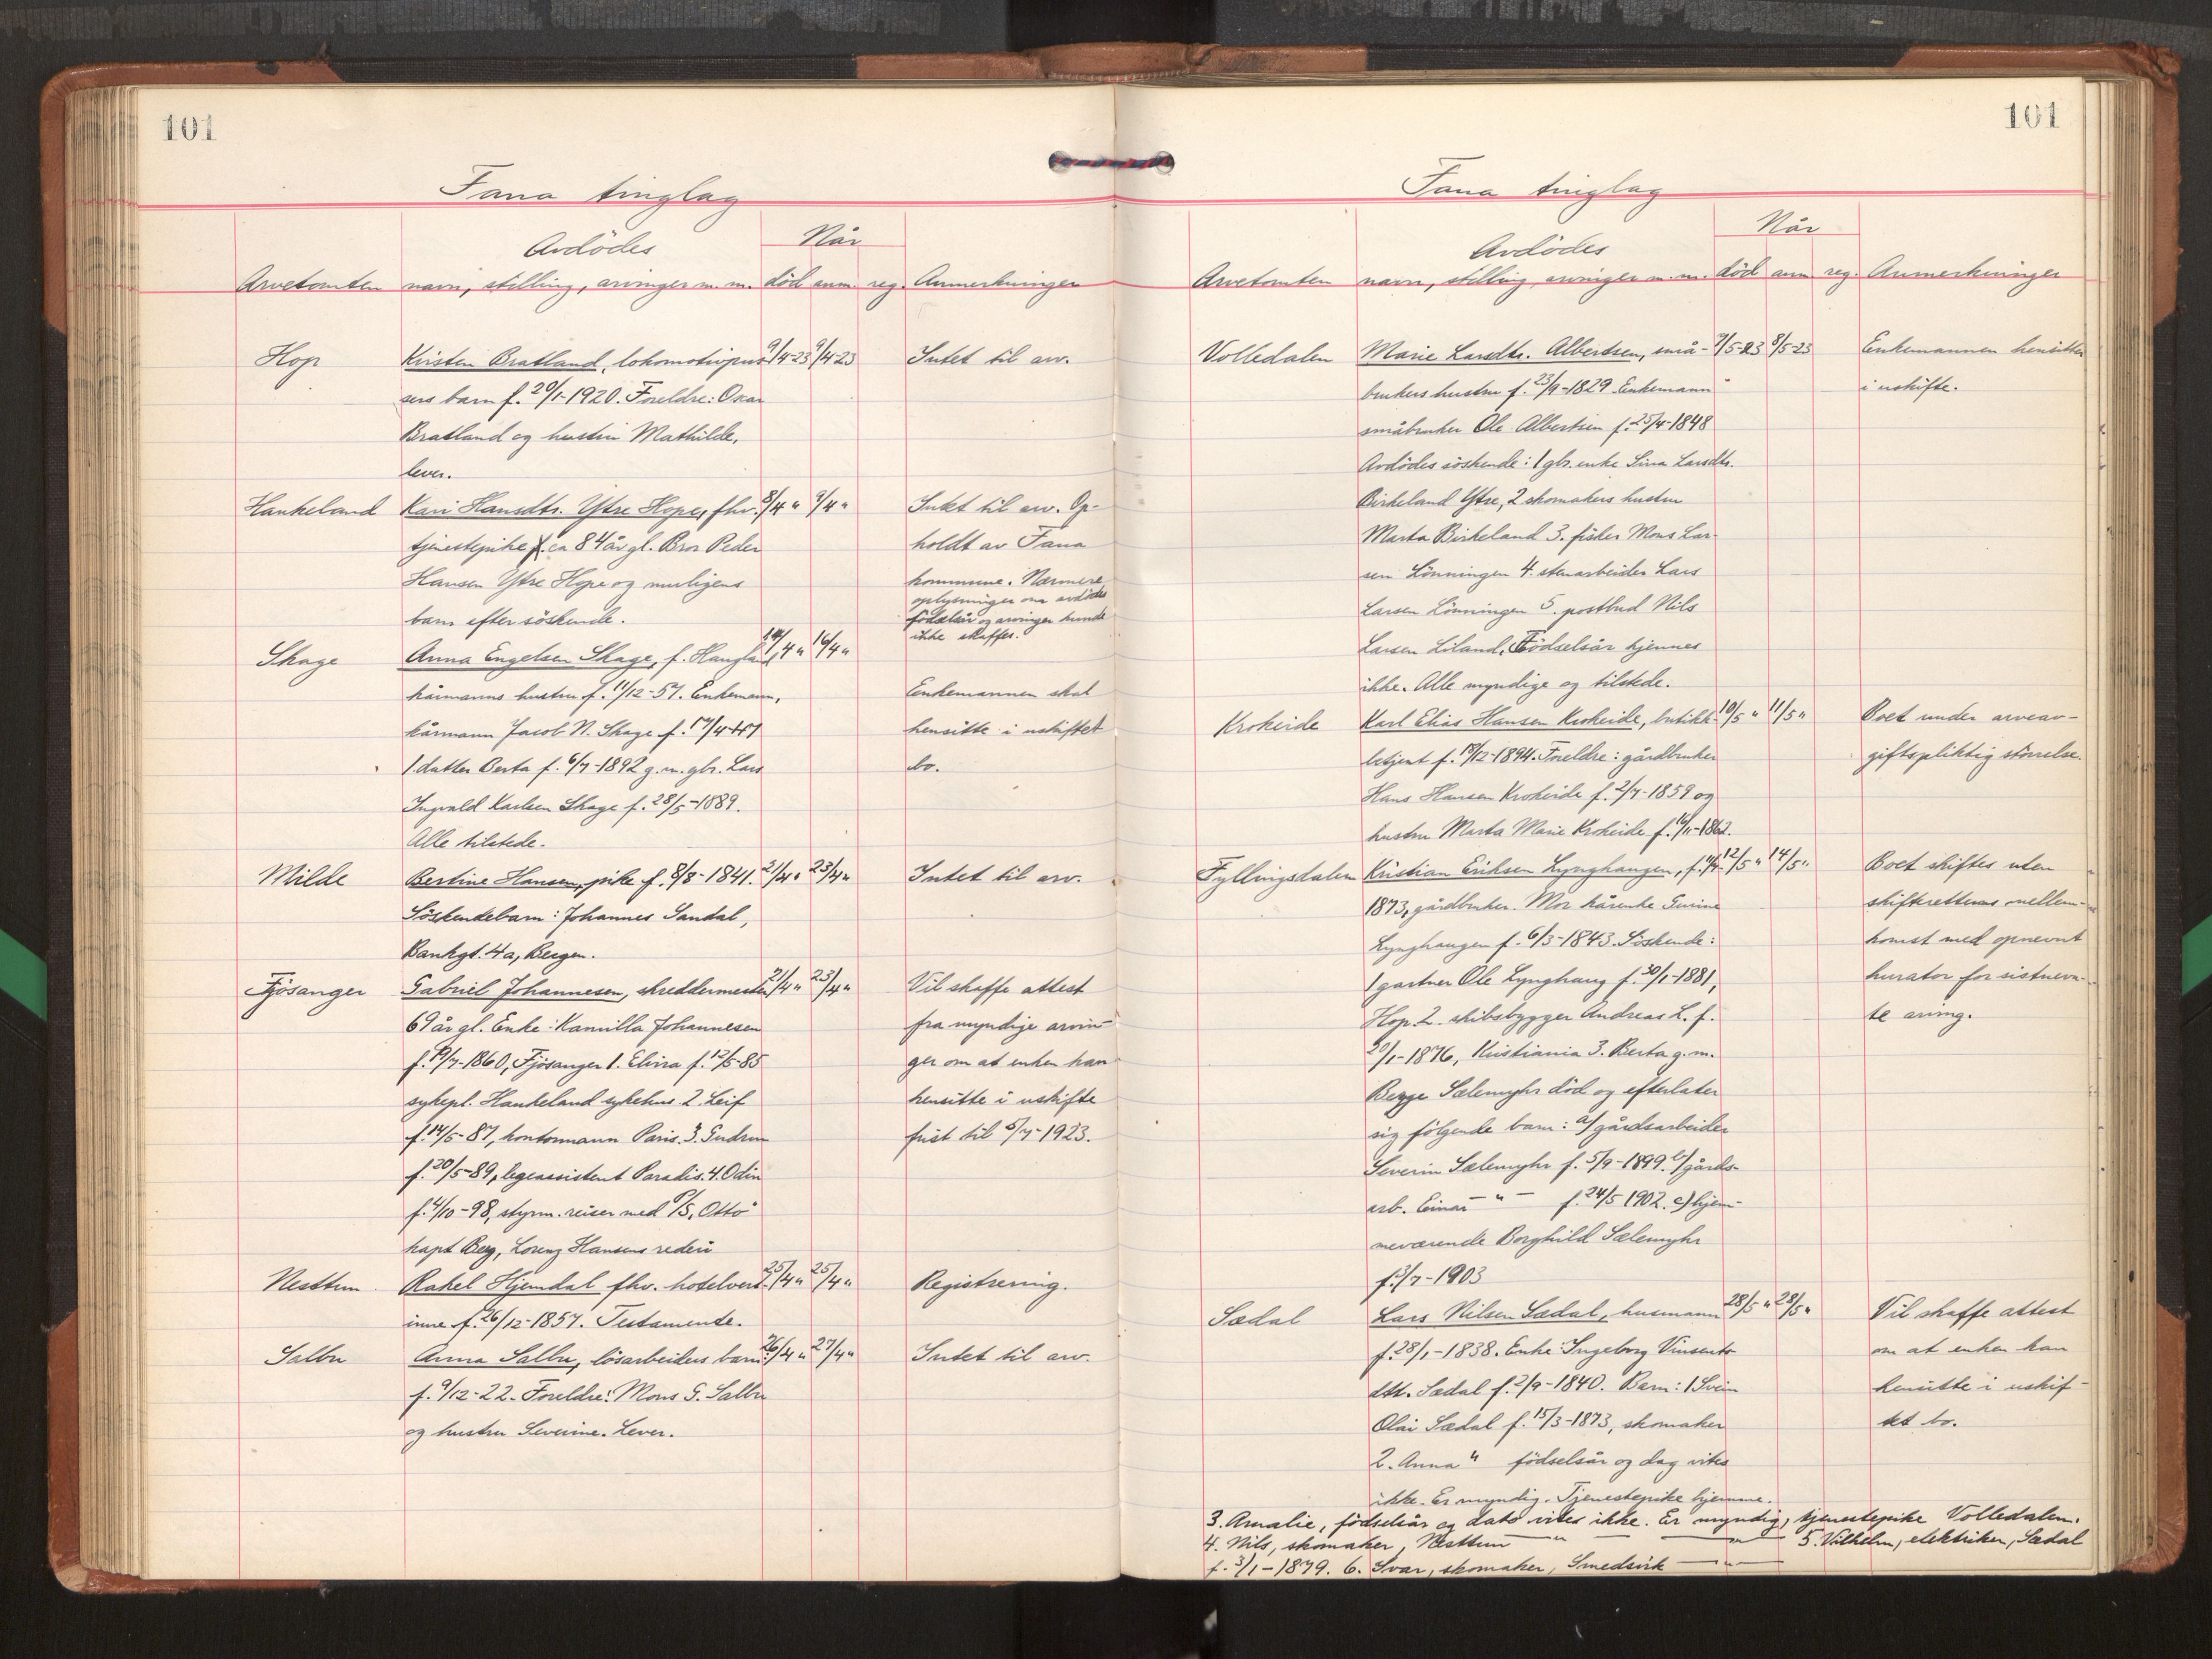 101
Fana tinglag
Avdödes
Når
Arvetomten navn, stilling, arvinger m. m. död anm. reg. Anmerkninger
Hop Kirsten Bratland, lokomotivpus- 9/4-23 9/4-23 Intet til arv.
sers barn f. 29/1-1920. Foreldre: Oskar
Bratland og hustru Mathilde,
lever.
Haukeland Kari Hansdtr. Ytre Hope, fhv. 8/4 " 9/4 " Intet til arv. Op-
tjenestepike f. ca 84 år gl. Bror Peder holdt av Fana
Hansen Ytre Hope og muligens kommune. Nærmere
oplysninger om avdödes
barn efter söskende. födselsår og arvinger kunde
ikke skaffes.
Skage Anna Engelsen Skage, f. Haugland, 14/4 " 16/4 "
kårmanns hustru f. 11/12-57. Enkemann, Enkemannen skal
kårmann Jacob N. Skage f. 17/4-47 hensitte i uskiftet
1. datter Berta f. 6/7-1892 g. m. gbr. Lars bo.
Ingvald Karlsen Skage f. 28/5-1889.
Alle tilstede.
Milde Bertine Hansen, pike f. 8/8-1841. 21/4 " 23/4 " Intet til arv.
Söskendebarn: Johannes Sandal,
Bankgt. 4a, Bergen.
Fjösanger Gabriel Johannesen, skreddermester 21/4 " 23/4 " Vil skaffe attest
69 år gl. Enke: Kamilla Johannesen fra myndige arvin-
f. 19/7-1860, Fjösanger 1. Elvira f. 12/5-85 ger om at enken kan
sykepl. Haukeland sykehus. 2. Leif hensitte i uskifte
f. 14/5-87, kontormann Paris. 3. Gudrun frist til 5/7-1923.
f. 20/5-89, legeassistent Paradis. 4. Odin
f. 4/10-98, styrm. reiser med D/S "Otto"
kapt Berg, Lorenz Hansens rederi
Nesttun Rakel Hjemdal fhv. hotelvert- 25/4 " 25/4 " Registrering.
inne f. 26/12-1857. Testamente.
Salbu Anna Salbu, lösarbeiders barn 26/4 " 27/4 " Intet til arv.
f. 9/12-22. Foreldre: Mons G. Salbu
og hustru Severine. Lever.
101
Fana tinglag
Avdödes
Når
Arvetomten navn, stilling, arvinger m. m. död anm. reg. Anmerkninger
Volledalen Marie Larsdtr. Albertsen, små- 7/5-23 8/5-23 Enkemannen hensitter
brukers hustru f. 23/9-1829. Enkemann i uskifte.
småbruker Ole Albertsen f. 25/4-1848
Avdödes söskende: 1 gbr. enke Sina Larsdtr.
Birkeland Ytre, 2 skomakers hustru
Marta Birkeland 3. fisker Mons Lar-
sen Lönningen 4. stenarbeider Lars
Larsen Lönningen 5. postbud Nils
Larsen Liland. Födselsår kjennes
ikke. Alle myndige og tilstede.
Krokeide Karl Elias Hansen Krokeide, butikk- 10/5 " 11/5 " Boet under arveav-
betjent f. 18/12-1894. Foreldre: gårdbruker giftspliktig störrelse.
Hans Hansen Krokeide f. 2/7-1859 og
hustru Marta Marie Krokeide f. 16/11-1862.
Fyllingsdalen Kristian Eriksen Lynghaugen, f. 11/4 12/5 " 14/5 " Boet skiftes uten
1873, gårdbruker. Mor kårenke Gurine skifterettens mellem-
Lynghaugen f. 6/3-1843. Söskende: komst med opnevnt
1 gartner Ole Lynghaug f. 30/1-1881, kurator for sistnevn-
Hop. 2. skibsbygger Andreas L. f. te arving.
29/1-1876, Kristiania 3. Berta g. m.
Berge Sælemyhr död og efterlater
sig fölgende barn: a/ gårdsarbeider
Severin Sælemyhr f. 5/9-1899. b/ gårds-
arb. Einar — " — f. 24/5 1902. c) hjem-
meværende Borghild Sælemyhr
f. 3/7-1903
Sædal Lars Nilsen Sædal, husmann 28/5 " 28/5 " Vil skaffe attest
f. 28/1-1838. Enke: Ingeborg Vinsents- om at enken kan
dtt. Sædal f. 2/9-1840. Barn: 1 Svein hensitte i uskif-
Olai Sædal f. 15/3-1873, skomaker tet bo.
2. Anna " födselsår og dag vites
ikke. Er myndig. Tjenestepike hjemme.
3. Amalie, födselsår og dato vites ikke. Er myndig, tjenestepike Volledalen.
4. Nils, skomaker, Nesttun — " — — " — 5. Vilhelm, elektriker, Sædal
f. 3/1-1879. 6. Ivar, skomaker, Smedsvik — " —